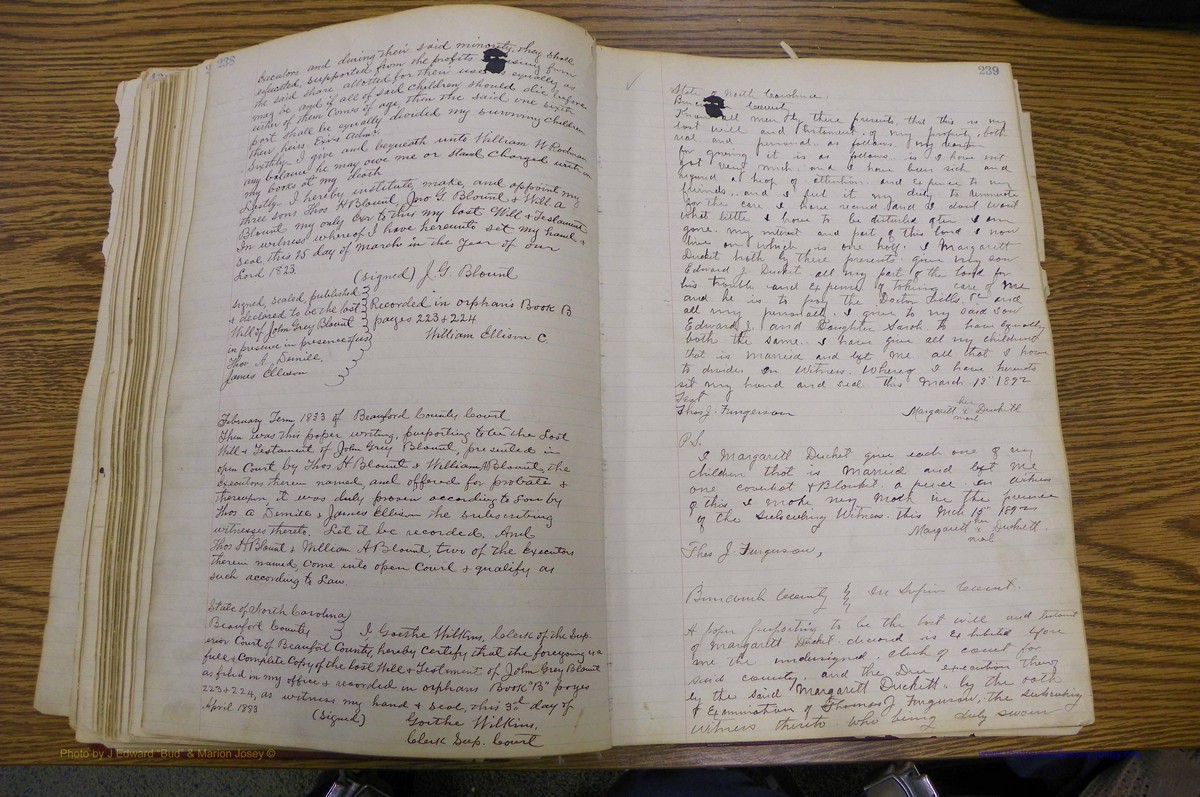 238
executors and during their said minority, they shall
educated, supported from the profits arising from
the said share allotted for their use as equally as
may be and if all of said children should die before
either of them Comes of age, then the said one sixth
part shall be equally divided my surviving children
their heirs Exrs Admrs
Sixthly I give and bequeath unto William W Rodman
any balance he may owe me or Stand Charged with on
my books at my death
Lastly I hereby institute, make, and appoint my
three sons Thos H Blount, Jno G. Blount & Will. A
Blount my only Exr to this my last Will & Testament
In witness whereof I have hereunto set my hand &
seal, this 25 day of March in the Year of our
Lord 1823.
(signed) J. G. Blount
signed, sealed, published
& declared to be the last
Will of John Grey Blount
in presence in presence of us
Thos A. Demille,
James Ellison
Recorded in orphans Book B
pages 223 & 224
William Ellison C.
February Term 1833 of Beauford County Court
Then was this paper writing, purporting to be the Last
Will & Testament of John Grey Blount, presented in
open Court by Thos H Blount & William A Blount, the
executors therein named, and offered for probate &
thereupon it was duly proven according to Law by
Thos A Demille & James Ellison the subscribing
witnesses thereto. Let it be recorded. And
Thos H Blount & William A Blount, two of the Executors
therein named, come into open Court & qualify as
such according to Law.
State of North Carolina
Beaufort County
I, Goethe Wilkins, Clerk of the Sup-
erior Court of Beaufort County, hereby Certify that the foregoing is a
full & Complete Copy of the last Will & Testament of John Grey Blount
as filed in my office & recorded in orphans Book "B" pages
223 & 224, as witness my hand & seal, this 3d day of
April 1893
(Signed)
Goethe Wilkins,
Clerk Sup. Court
239
State of North Carolina,
County
Know all men by these presents, that this is my
last will and testament of my property, both
real and personal as follows. my reason
for giving it is as follows is I have not
got very much and I have been sick and
required a heap of attention and expense to my
friends, and I feel it my duty to remunerate
for the care I have received and I dont want
what little I have to be disturbed after I am
gone. my interest and part of this land I now
live on which is one half. I Margarett
Ducket doth by these presents give my son
Edward J. Ducket all my part of the land for
his trouble and Expense of taking care of me
and he is to pay the Doctor bills &c and
all my personall. I give to my said son
Edward J. and Daughter Sarah to have equally
both the same. I have give all my children
that is married and left me all that I have
to divide. In Witness Whereof I have hereunto
set my hand and seal. This March 13" 1892
Test
Thos J. Furgerson
Margarett her x mark Duckett
P.S.
I Margarett Ducket give each one of my
children that is married and left me
one coverlet & Blanket a piece. In witness
of this I make my mark in the presence
of the Subscribing Witness. This Mch 15" 1892
Margarett her x mark Duckett.
Thos J. Furgerson,
Buncomb County In Superior Court.
A paper purporting to be the last will and testament
of Margarett Ducket deceased is Exhibited before
me the undersigned, clerk of court for
said county, and the Due execution thereof
by the said Margarett Duckett. by the oath
& Examination of Thomas J. Furgerson, the subscribing
witness thereto. Who being duly sworn
Photo by J Edward "Bud" & Marion Josey ©